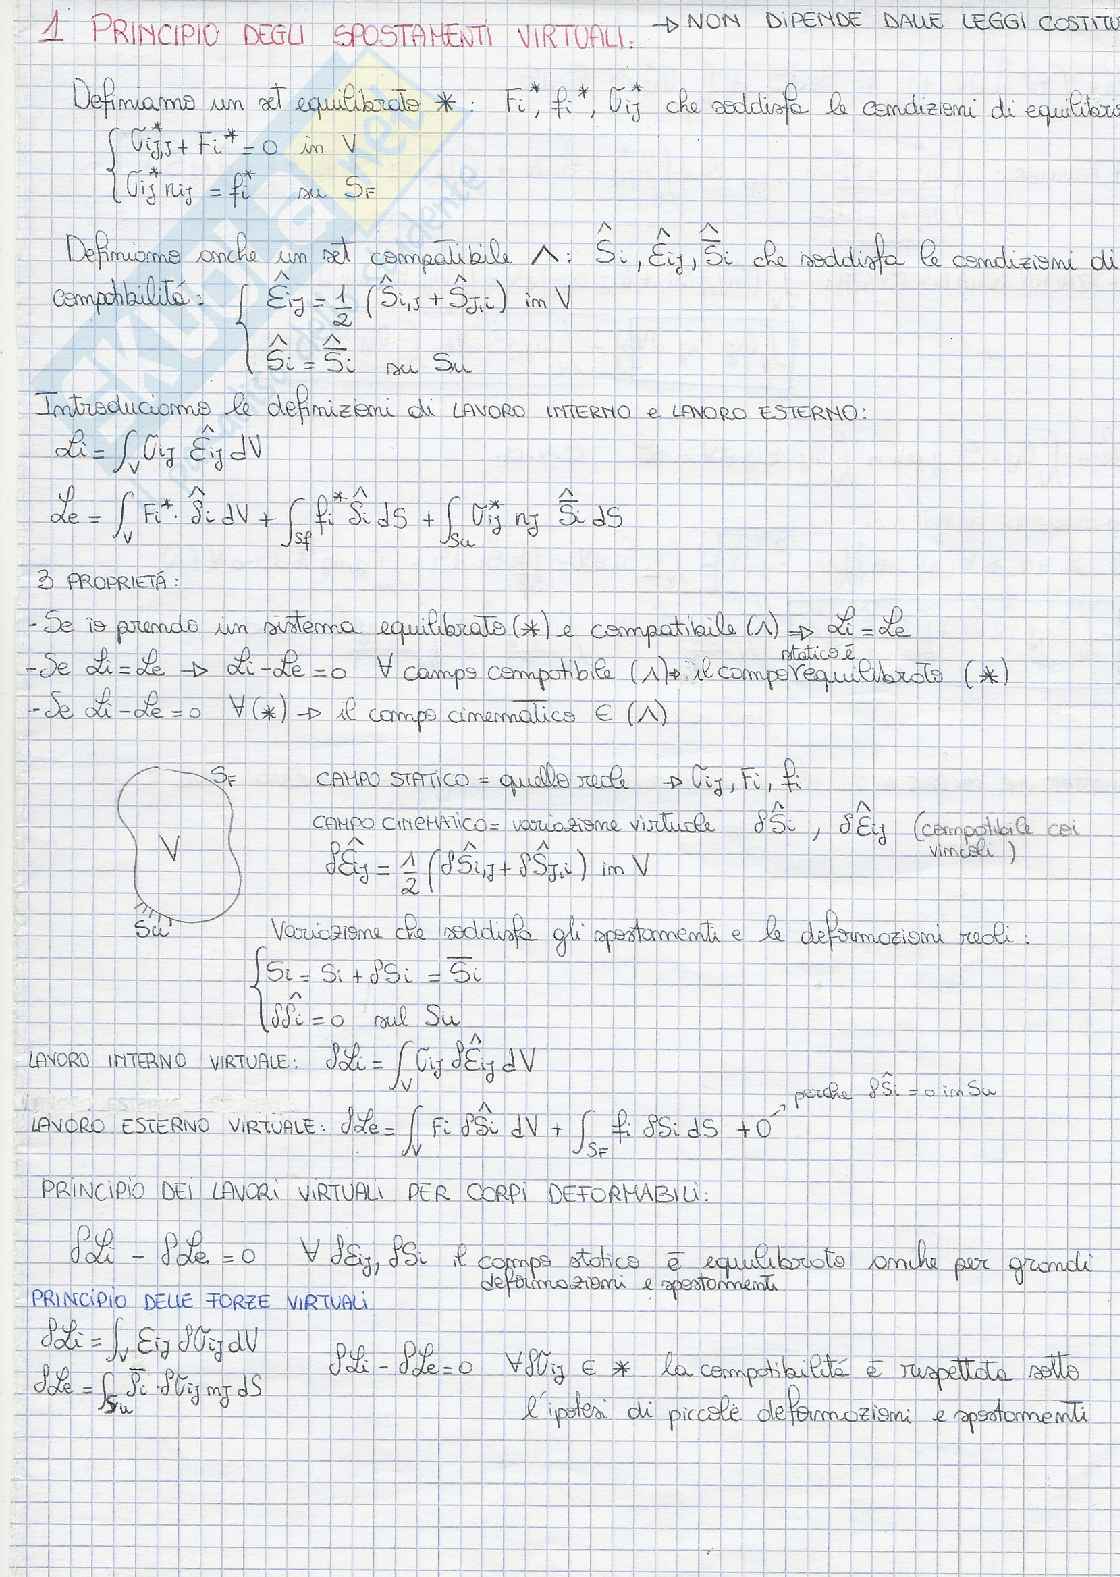 1 PRINCIPIO DEGLI SPOSTAMENTI VIRTUALI: → NON DIPENDE DALLE LEGGI COSTITU
Definiamo un set equilibrato * : Fi*, fi*, σij* che soddisfa le condizioni di equilibro
{ σij,j* + Fi* = 0 in V
σij* nj = fi* su SF
Definiamo anche un set compatibile Λ: Ŝi, ε̂ij, S̄̂i che soddisfa le condizioni di
compatibilitá: { ε̂ij = 1/2 (Ŝi,j + Ŝj,i) in V
Ŝi = S̄̂i su Su
Introduciamo le definizioni di LAVORO INTERNO e LAVORO ESTERNO:
Li = ∫V σij ε̂ij dV
Le = ∫V Fi* · Ŝi dV + ∫Sf fi* Ŝi dS + ∫Su σij* nj S̄̂i dS
3 PROPRIETÁ:
- Se io prendo un sistema equilibrato (*) e compatibile (Λ) ⇒ Li = Le
- Se Li = Le → Li - Le = 0 ∀ campo compatibile (Λ) → il campo statico è equilibrato (*)
- Se Li - Le = 0 ∀(*) → il campo cinematico ∈ (Λ)
SF
V
Su
CAMPO STATICO = quello reale → σij, Fi, fi
CAMPO CINEMATICO = variazione virtuale δŜi, δε̂ij (compatibile coi
vincoli)
δε̂ij = 1/2 (δŜi,j + δŜj,i) in V
Variazione che soddisfa gli spostamenti e le deformazioni reali:
{ Si = Si + δSi = S̄i
δŜi = 0 sul Su
LAVORO INTERNO VIRTUALE: δLi = ∫V σij δε̂ij dV
LAVORO ESTERNO VIRTUALE: δLe = ∫V Fi δŜi dV + ∫SF fi δSi dS + 0 → perche δŜi = 0 in Su
PRINCIPIO DEI LAVORI VIRTUALI PER CORPI DEFORMABILI:
δLi - δLe = 0 ∀ δεij, δSi il campo statico è equilibrato anche per grandi
deformazioni e spostamenti
PRINCIPIO DELLE FORZE VIRTUALI
δLi = ∫V εij δσij dV
δLe = ∫Su S̄i · δσij nj dS
δLi - δLe = 0 ∀δσij ∈ * la compatibilitá è rispettata sotto
l'ipotesi di piccole deformazioni e spostamenti